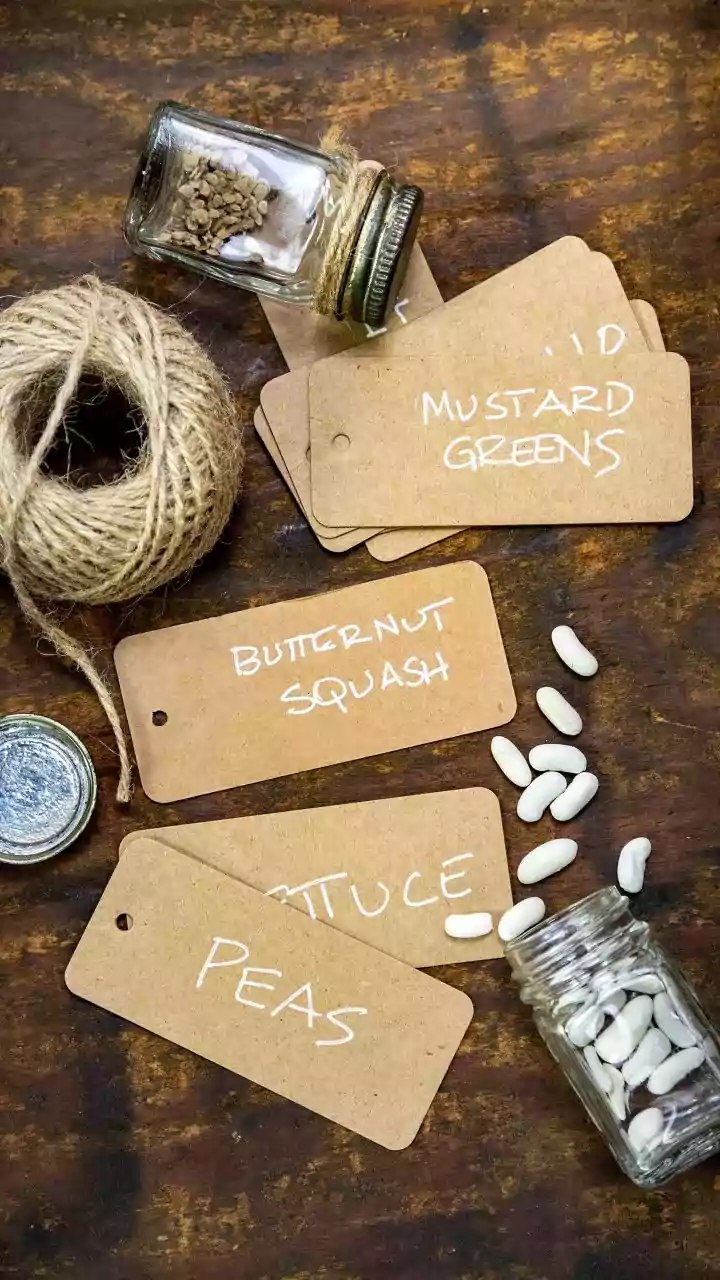 MUSTARD
GREENS
BUTTERNUT
SQUASH
TTUCE
PEAS